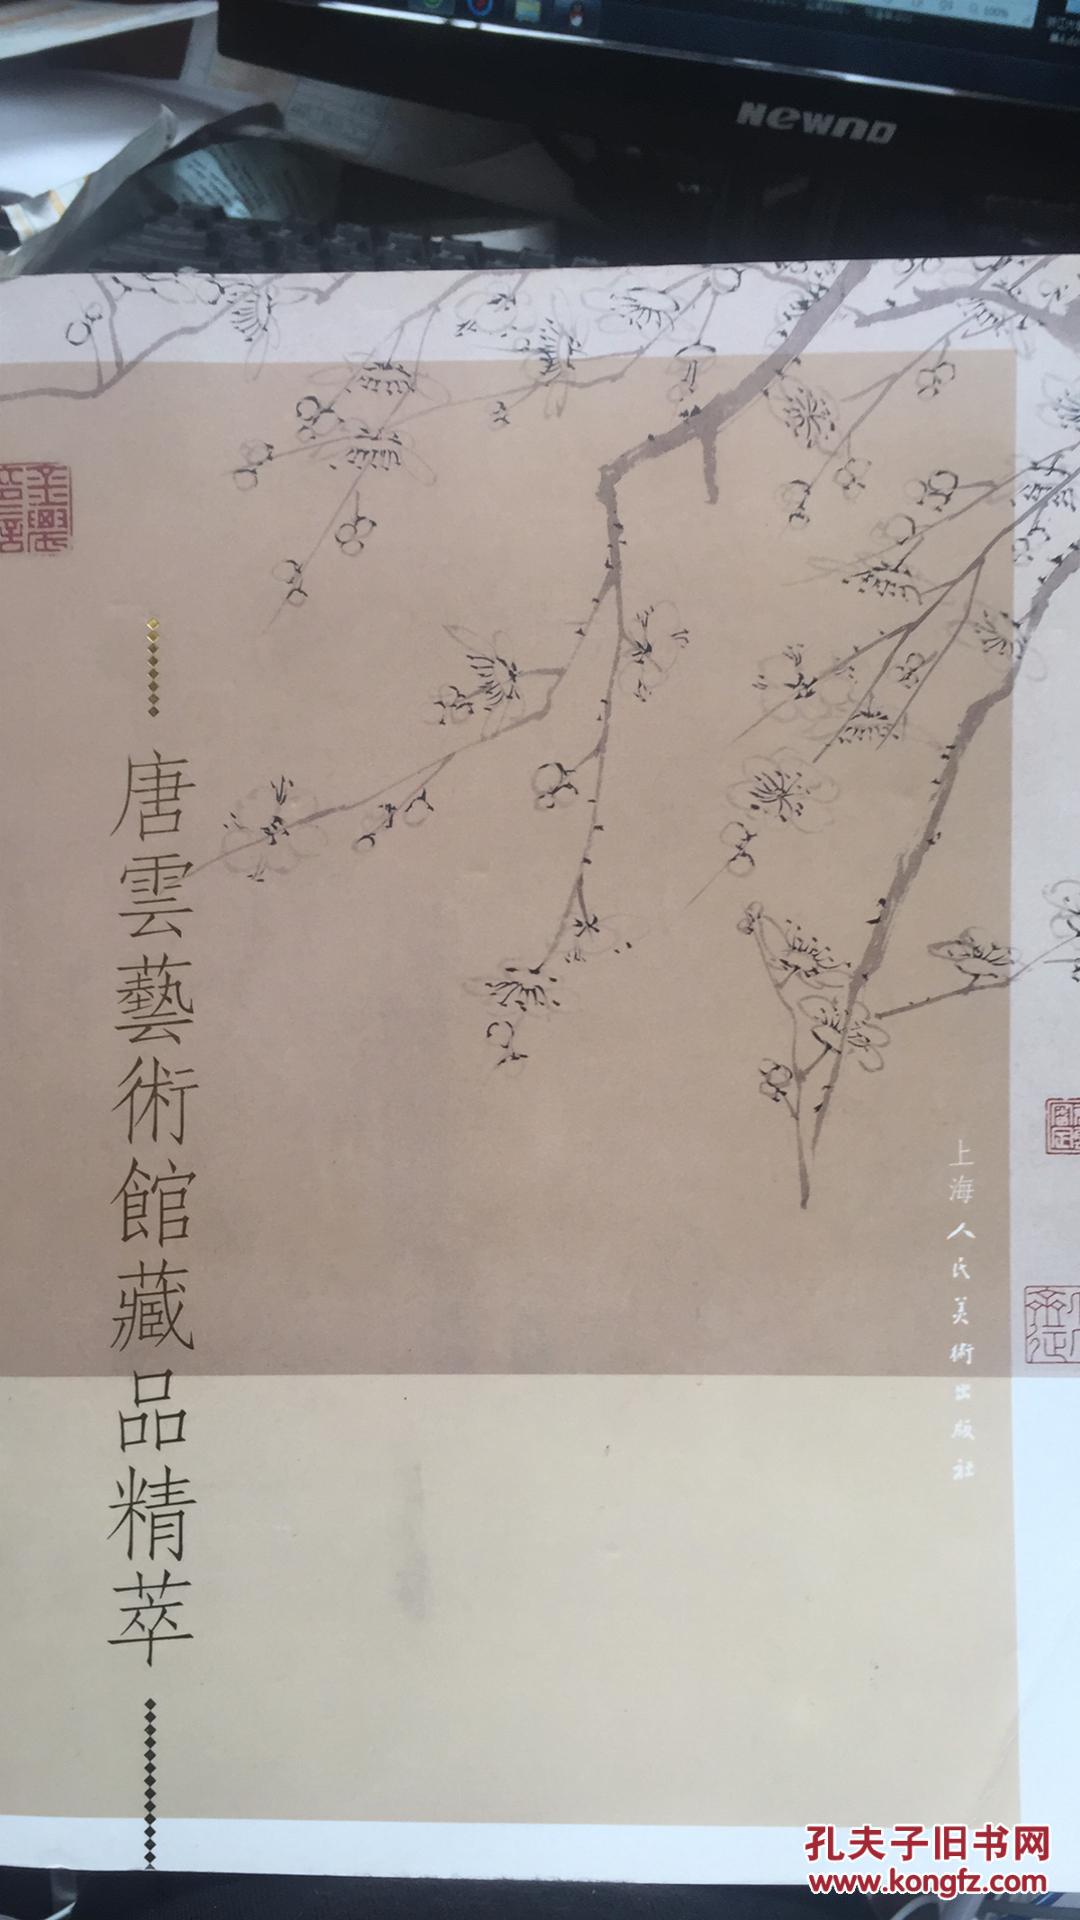 Newno
唐雲藝術館藏品精萃
上海人民美術出版社
孔夫子旧书网
www.kongfz.com